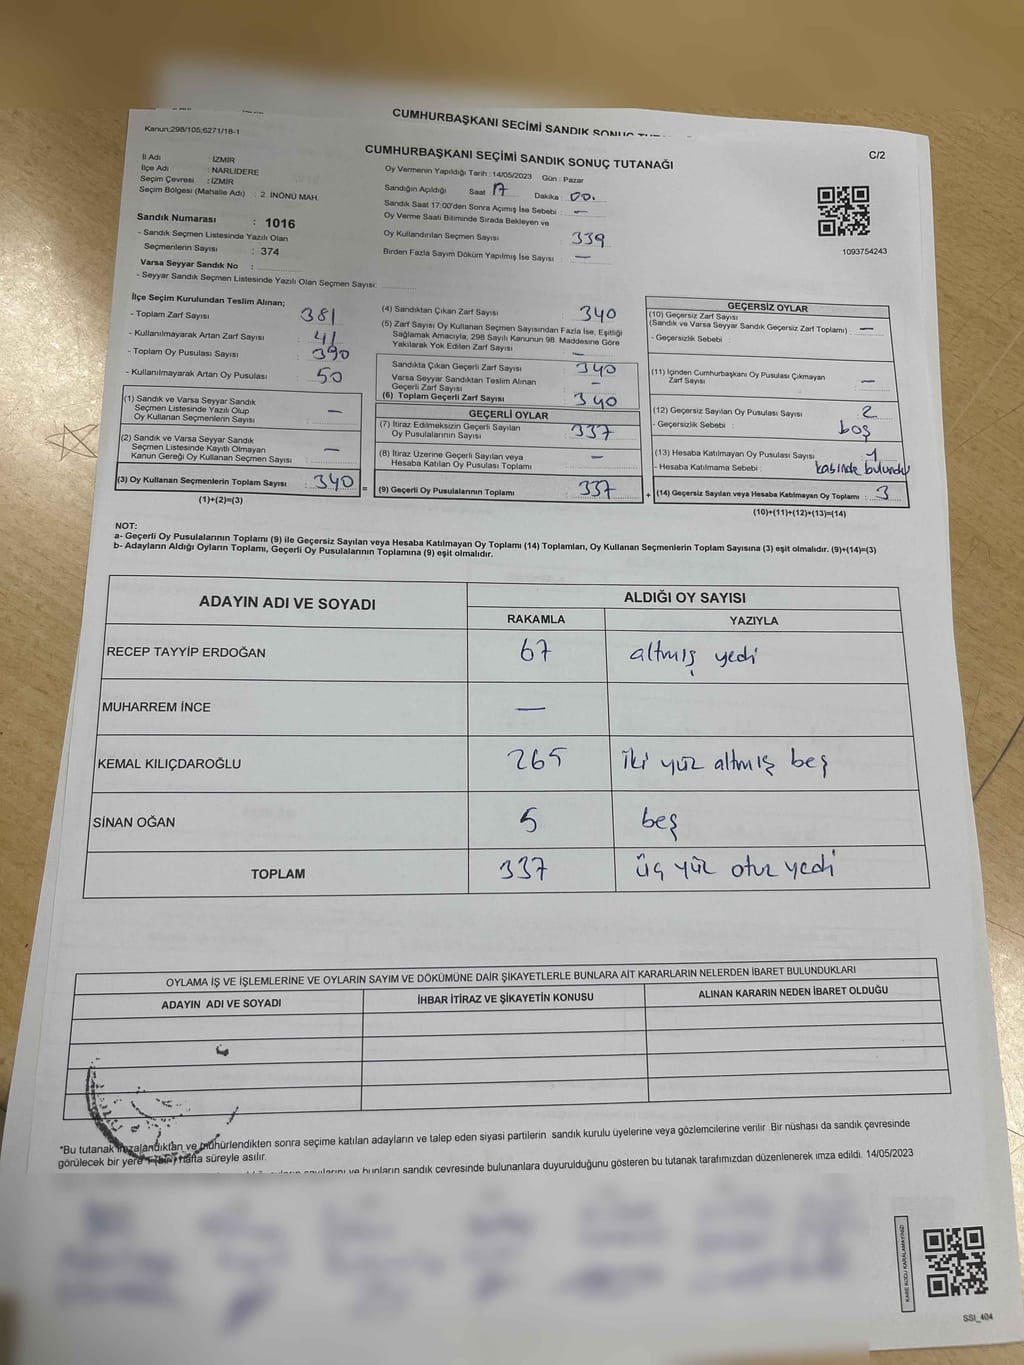 CUMHURBAŞKANI SEÇİMİ SANDIK SONUÇ
Kanun;298/105;6271/18-1
C/2
CUMHURBAŞKANI SEÇİMİ SANDIK SONUÇ TUTANAĞI
İl Adı : İZMİR
İlçe Adı : NARLIDERE
Seçim Çevresi : İZMİR
Seçim Bölgesi (Mahalle Adı) : 2. İNÖNÜ MAH.
Sandık Numarası : 1016
- Sandık Seçmen Listesinde Yazılı Olan
Seçmenlerin Sayısı : 374
Varsa Seyyar Sandık No :
- Seyyar Sandık Seçmen Listesinde Yazılı Olan Seçmen Sayısı:
Oy Vermenin Yapıldığı Tarih : 14/05/2023 Gün : Pazar
Sandığın Açıldığı Saat : 17 Dakika : 00.
Sandık Saat 17:00'den Sonra Açımış İse Sebebi : —
Oy Verme Saati Bitiminde Sırada Bekleyen ve
Oy Kullandırılan Seçmen Sayısı : 339
Birden Fazla Sayım Döküm Yapılmış İse Sayısı : —
1093754243
İlçe Seçim Kurulundan Teslim Alınan;
- Toplam Zarf Sayısı : 381
- Kullanılmayarak Artan Zarf Sayısı : 41
- Toplam Oy Pusulası Sayısı : 390
- Kullanılmayarak Artan Oy Pusulası : 50
(1) Sandık ve Varsa Seyyar Sandık
Seçmen Listesinde Yazılı Olup
Oy Kullanan Seçmenlerin Sayısı : —
(2) Sandık ve Varsa Seyyar Sandık
Seçmen Listesinde Kayıtlı Olmayan
Kanun Gereği Oy Kullanan Seçmen Sayısı : —
(3) Oy Kullanan Seçmenlerin Toplam Sayısı : 340
(1)+(2)=(3)
=
(4) Sandıktan Çıkan Zarf Sayısı : 340
(5) Zarf Sayısı Oy Kullanan Seçmen Sayısından Fazla İse, Eşitliği
Sağlamak Amacıyla, 298 Sayılı Kanunun 98. Maddesine Göre
Yakılarak Yok Edilen Zarf Sayısı : —
Sandıkta Çıkan Geçerli Zarf Sayısı : 340
Varsa Seyyar Sandıktan Teslim Alınan
Geçerli Zarf Sayısı : —
(6) Toplam Geçerli Zarf Sayısı : 340
GEÇERLİ OYLAR
(7) İtiraz Edilmeksizin Geçerli Sayılan
Oy Pusulalarının Sayısı : 337
(8) İtiraz Üzerine Geçerli Sayılan veya
Hesaba Katılan Oy Pusulası Toplamı : —
(9) Geçerli Oy Pusulalarının Toplamı : 337
+
GEÇERSİZ OYLAR
(10) Geçersiz Zarf Sayısı
(Sandık ve Varsa Seyyar Sandık Geçersiz Zarf Toplamı) : —
- Geçersizlik Sebebi :
(11) İçinden Cumhurbaşkanı Oy Pusulası Çıkmayan
Zarf Sayısı : —
(12) Geçersiz Sayılan Oy Pusulası Sayısı : 2
- Geçersizlik Sebebi : boş
(13) Hesaba Katılmayan Oy Pusulası Sayısı : 1
- Hesaba Katılmama Sebebi : kabinde bulundu
(14) Geçersiz Sayılan veya Hesaba Katılmayan Oy Toplamı : 3
(10)+(11)+(12)+(13)=(14)
NOT:
a- Geçerli Oy Pusulalarının Toplamı (9) ile Geçersiz Sayılan veya Hesaba Katılmayan Oy Toplamı (14) Toplamları, Oy Kullanan Seçmenlerin Toplam Sayısına (3) eşit olmalıdır. (9)+(14)=(3)
b- Adayların Aldığı Oyların Toplamı, Geçerli Oy Pusulalarının Toplamına (9) eşit olmalıdır.
ADAYIN ADI VE SOYADI ALDIĞI OY SAYISI
RAKAMLA YAZIYLA
RECEP TAYYİP ERDOĞAN 67 altmış yedi
MUHARREM İNCE —
KEMAL KILIÇDAROĞLU 265 İki yüz altmış beş
SİNAN OĞAN 5 beş
TOPLAM 337 üç yüz otuz yedi
OYLAMA İŞ VE İŞLEMLERİNE VE OYLARIN SAYIM VE DÖKÜMÜNE DAİR ŞİKAYETLERLE BUNLARA AİT KARARLARIN NELERDEN İBARET BULUNDUKLARI
ADAYIN ADI VE SOYADI İHBAR İTİRAZ VE ŞİKAYETİN KONUSU ALINAN KARARIN NEDEN İBARET OLDUĞU
*Bu tutanak imzalandıktan ve mühürlendikten sonra seçime katılan adayların ve talep eden siyasi partilerin sandık kurulu üyelerine veya gözlemcilerine verilir. Bir nüshası da sandık çevresinde
görülecek bir yere 1 (bir) hafta süreyle asılır.
ve bunların sandık çevresinde bulunanlara duyurulduğunu gösteren bu tutanak tarafımızdan düzenlenerek imza edildi. 14/05/2023
KARE KODU KARALAMAYINIZ!
SSI_404